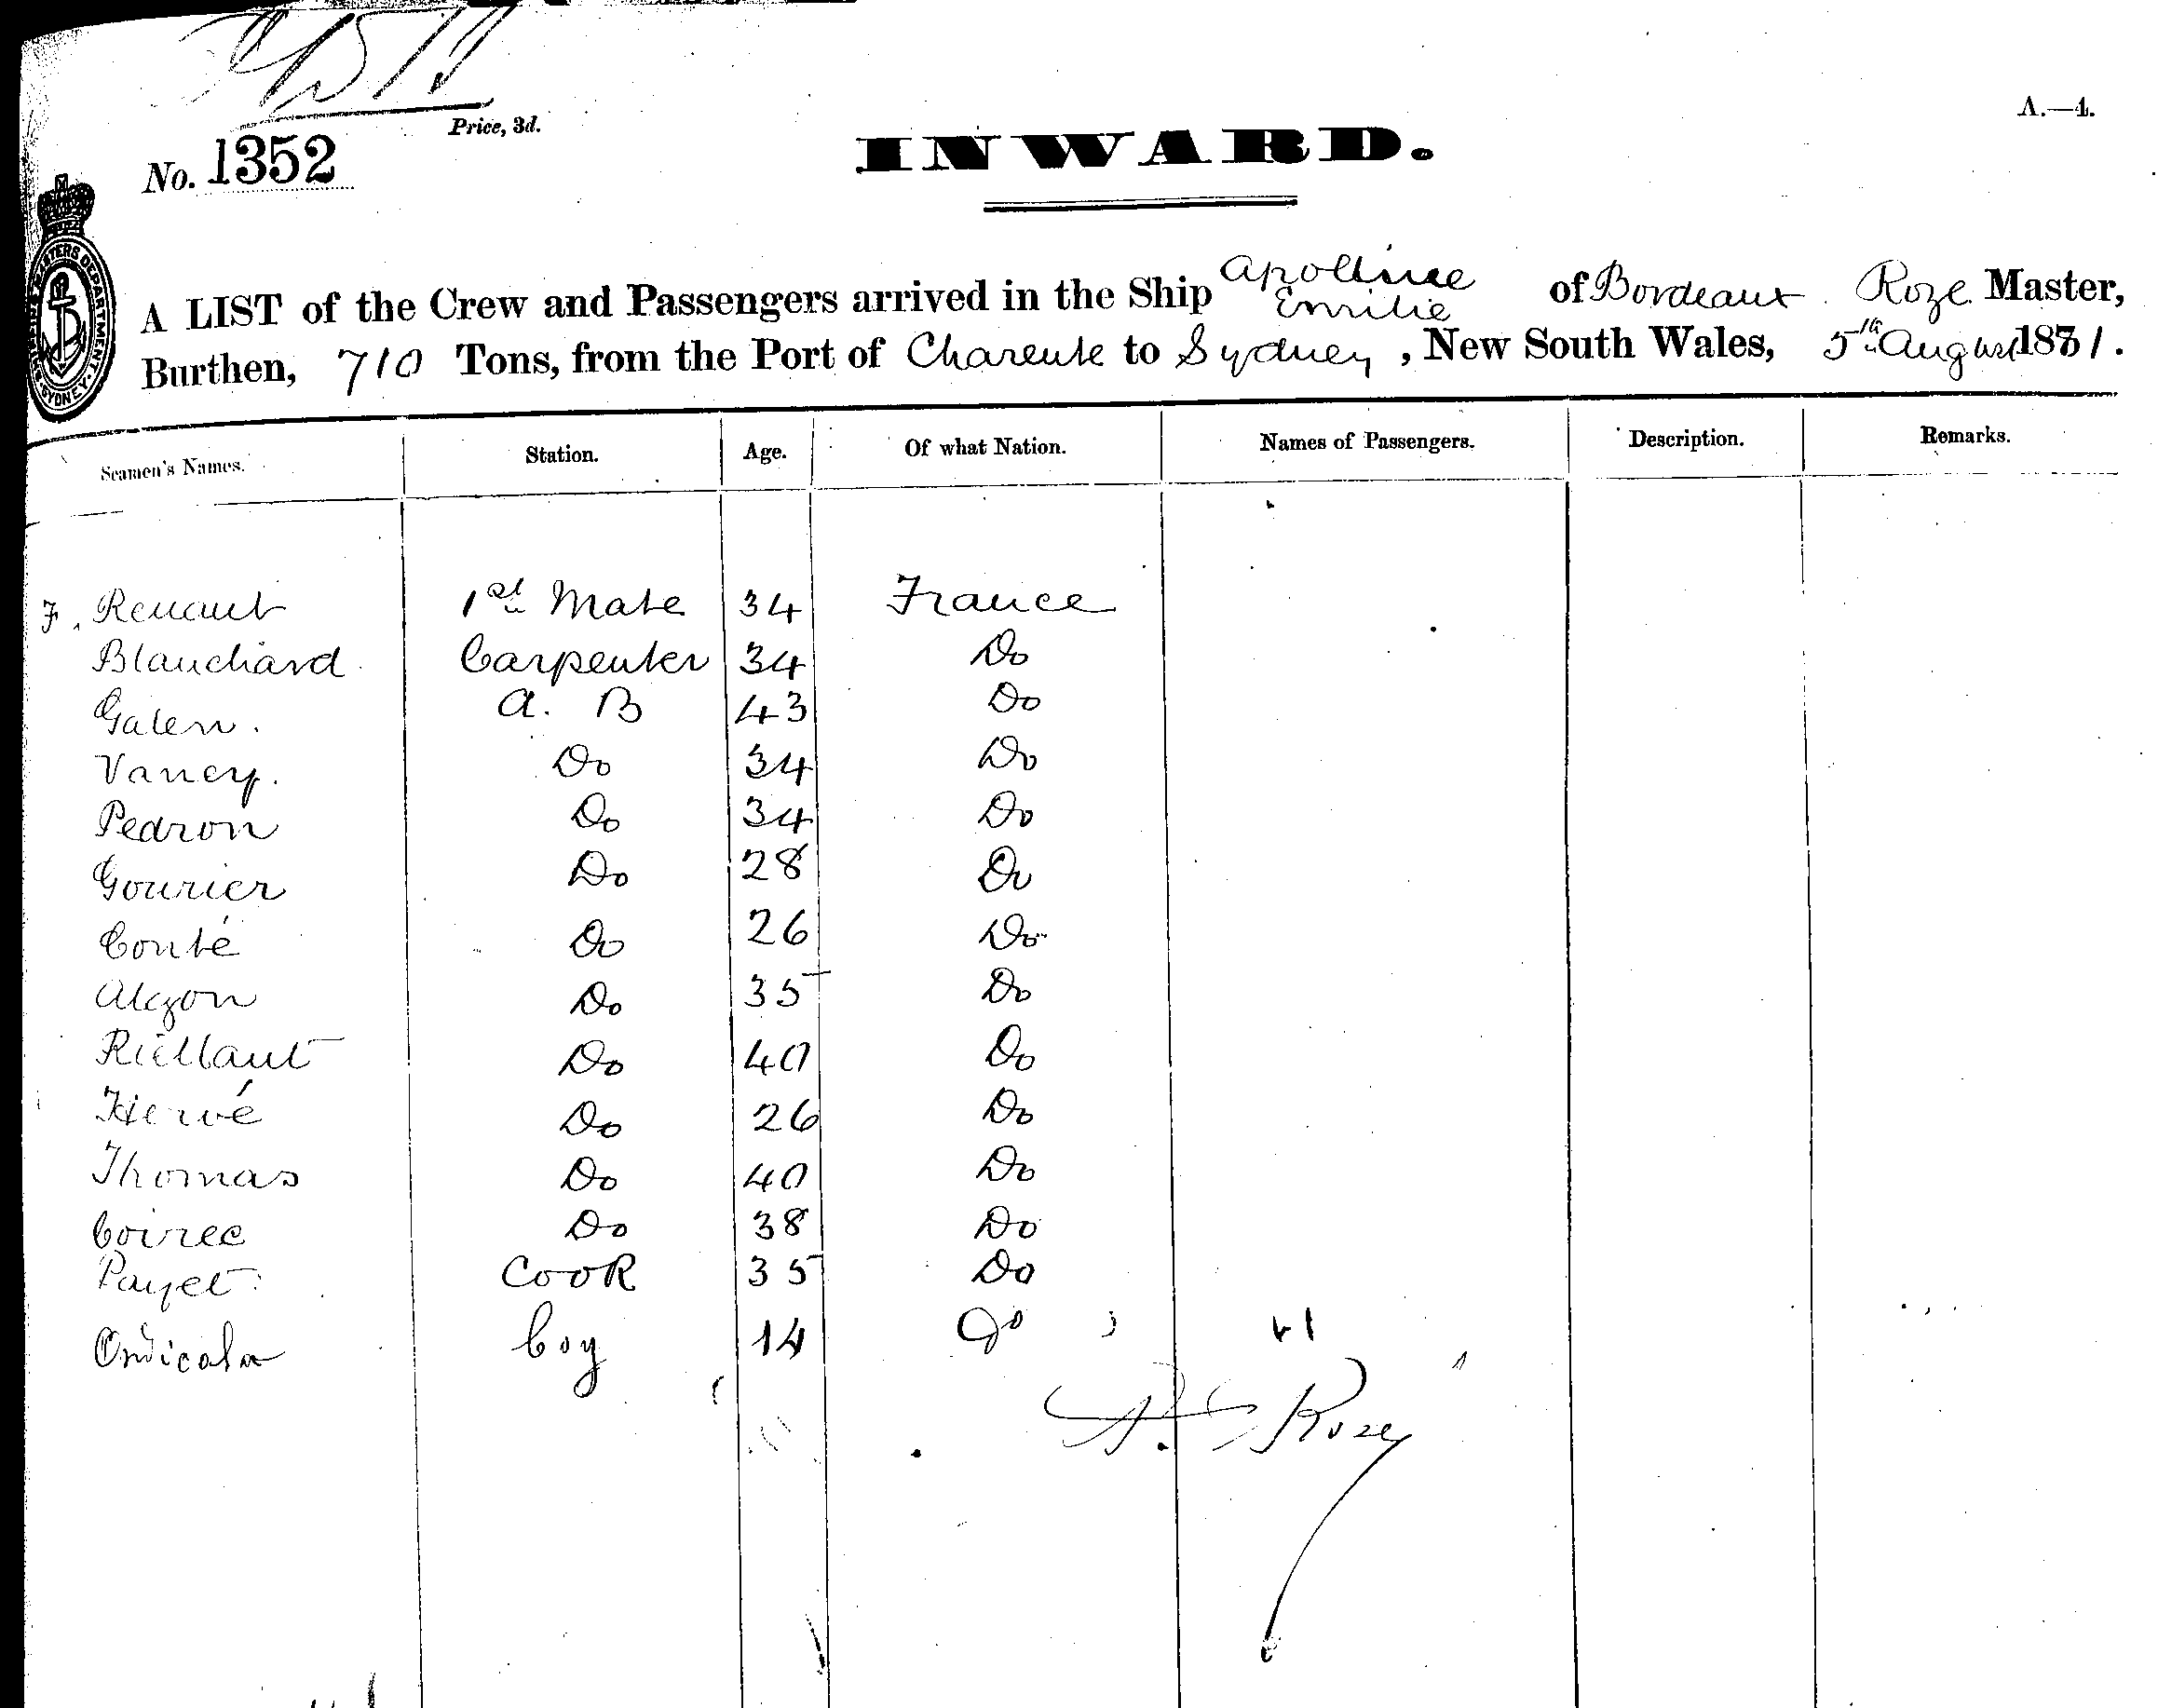 Price, 3d.
A.—4.
No. 1352
INWARD.
A LIST of the Crew and Passengers arrived in the Ship Apollinee Emilie of Bordeaux Roze Master,
Burthen, 710 Tons, from the Port of Charente to Sydney, New South Wales, 5th August 1881.
Seamen's Names. Station. Age. Of what Nation. Names of Passengers. Description. Remarks.
F. Renaut 1st Mate 34 France
Blanchard Carpenter 34 Do
Galen. A. B 43 Do
Vancy. Do 34 Do
Pedron Do 34 Do
Gourier Do 28 Do
Conté Do 26 Do
Do 35 Do
Riellaut Do 40 Do
Hervé Do 26 Do
Thomas Do 40 Do
Coirec Do 38 Do
Payet Cook 35 Do
boy 14 do
Roze